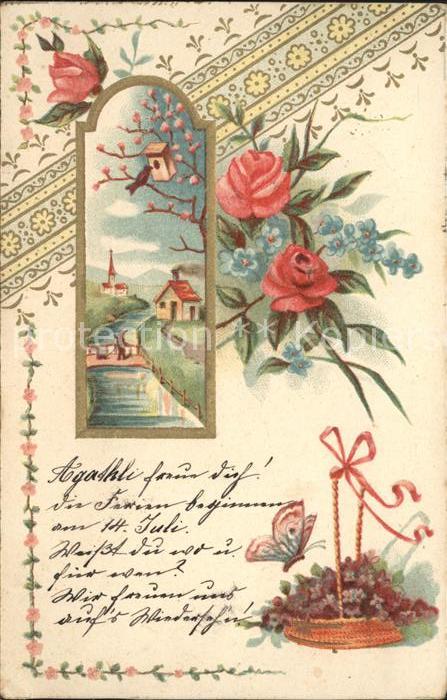 Agathli freue dich!
die Ferien beginnen
am 14. Juli.
Weißt du wo u.
für wen?
Wir freuen uns
auf's Wiederseh'n!
protection ** Kopiers